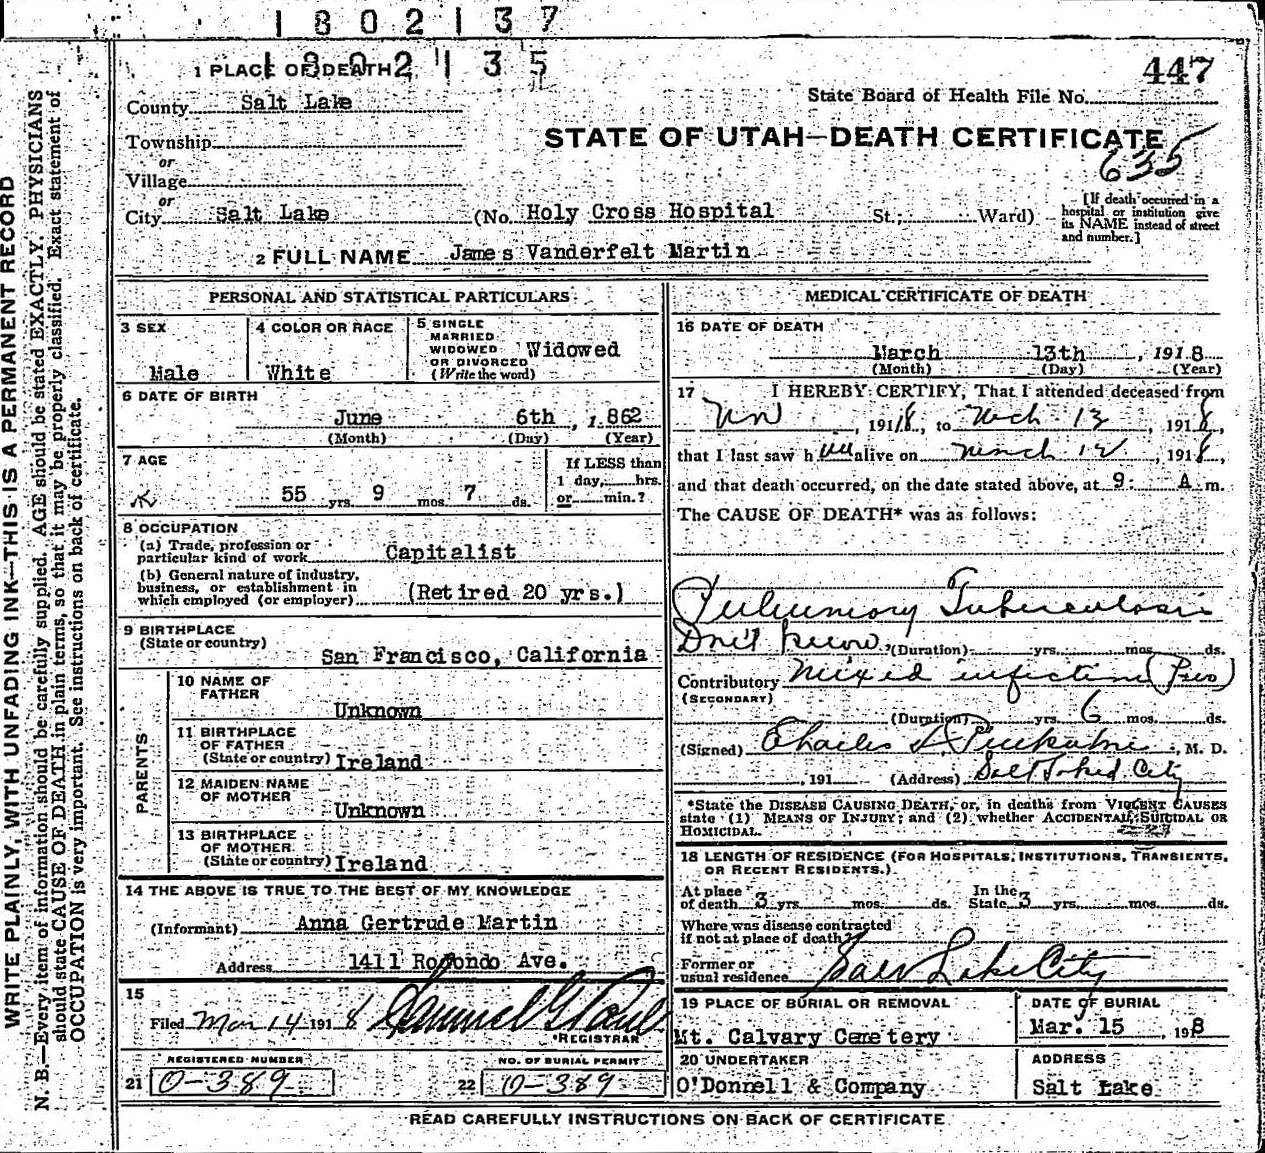 1802137
1802135
1 PLACE OF DEATH
447
County Salt Lake
State Board of Health File No.
Township
STATE OF UTAH—DEATH CERTIFICATE
635
or
Village
or
City Salt Lake (No. Holy Cross Hospital St.; Ward)
[If death occurred in a
hospital or institution give
its NAME instead of street
and number.]
2 FULL NAME James Vanderfelt Martin
PERSONAL AND STATISTICAL PARTICULARS
3 SEX
Male
4 COLOR OR RACE
White
5 SINGLE
MARRIED
WIDOWED
OR DIVORCED
(Write the word)
Widowed
6 DATE OF BIRTH
June 6th, 1862
(Month) (Day) (Year)
7 AGE
55 yrs. 9 mos. 7 ds.
If LESS than
1 day, hrs.
or min.?
8 OCCUPATION
(a) Trade, profession or
particular kind of work Capitalist
(b) General nature of industry,
business, or establishment in
which employed (or employer) (Retired 20 yrs.)
9 BIRTHPLACE
(State or country)
San Francisco, California
PARENTS
10 NAME OF
FATHER
Unknown
11 BIRTHPLACE
OF FATHER
(State or country) Ireland
12 MAIDEN NAME
OF MOTHER
Unknown
13 BIRTHPLACE
OF MOTHER
(State or country) Ireland
14 THE ABOVE IS TRUE TO THE BEST OF MY KNOWLEDGE
(Informant) Anna Gertrude Martin
Address 1411 Rodondo Ave.
15
Filed Mar 14 1918 Samuel G Paul
REGISTRAR
REGISTERED NUMBER
21 0-389
NO. OF BURIAL PERMIT
22 0-389
MEDICAL CERTIFICATE OF DEATH
16 DATE OF DEATH
March 13th, 1918
(Month) (Day) (Year)
17 I HEREBY CERTIFY, That I attended deceased from
, 1918, to Mch 13, 1918,
that I last saw h alive on March 12, 1918,
and that death occurred, on the date stated above, at 9: A m.
The CAUSE OF DEATH* was as follows:
Pulmonary Tuberculosis
Don't know (Duration) yrs. mos. ds.
Contributory Mixed infection
(SECONDARY)
(Duration) yrs. 6 mos. ds.
(Signed) Charles , M. D.
, 191 (Address) Salt Lake City
*State the DISEASE CAUSING DEATH, or, in deaths from VIOLENT CAUSES
state (1) MEANS OF INJURY; and (2) whether ACCIDENTAL, SUICIDAL OR
HOMICIDAL.
18 LENGTH OF RESIDENCE (FOR HOSPITALS, INSTITUTIONS, TRANSIENTS,
OR RECENT RESIDENTS.)
At place
of death 3 yrs. mos. ds.
In the
State 3 yrs. mos. ds.
Where was disease contracted
if not at place of death?
Former or
usual residence Salt Lake City
19 PLACE OF BURIAL OR REMOVAL
Mt. Calvary Cemetery
DATE OF BURIAL
Mar. 15, 198
20 UNDERTAKER
O'Donnell & Company
ADDRESS
Salt Lake
READ CAREFULLY INSTRUCTIONS ON BACK OF CERTIFICATE
WRITE PLAINLY, WITH UNFADING INK—THIS IS A PERMANENT RECORD
N. B.—Every item of information should be carefully supplied. AGE should be stated EXACTLY. PHYSICIANS
should state CAUSE OF DEATH in plain terms, so that it may be properly classified. Exact statement of
OCCUPATION is very important. See instructions on back of certificate.